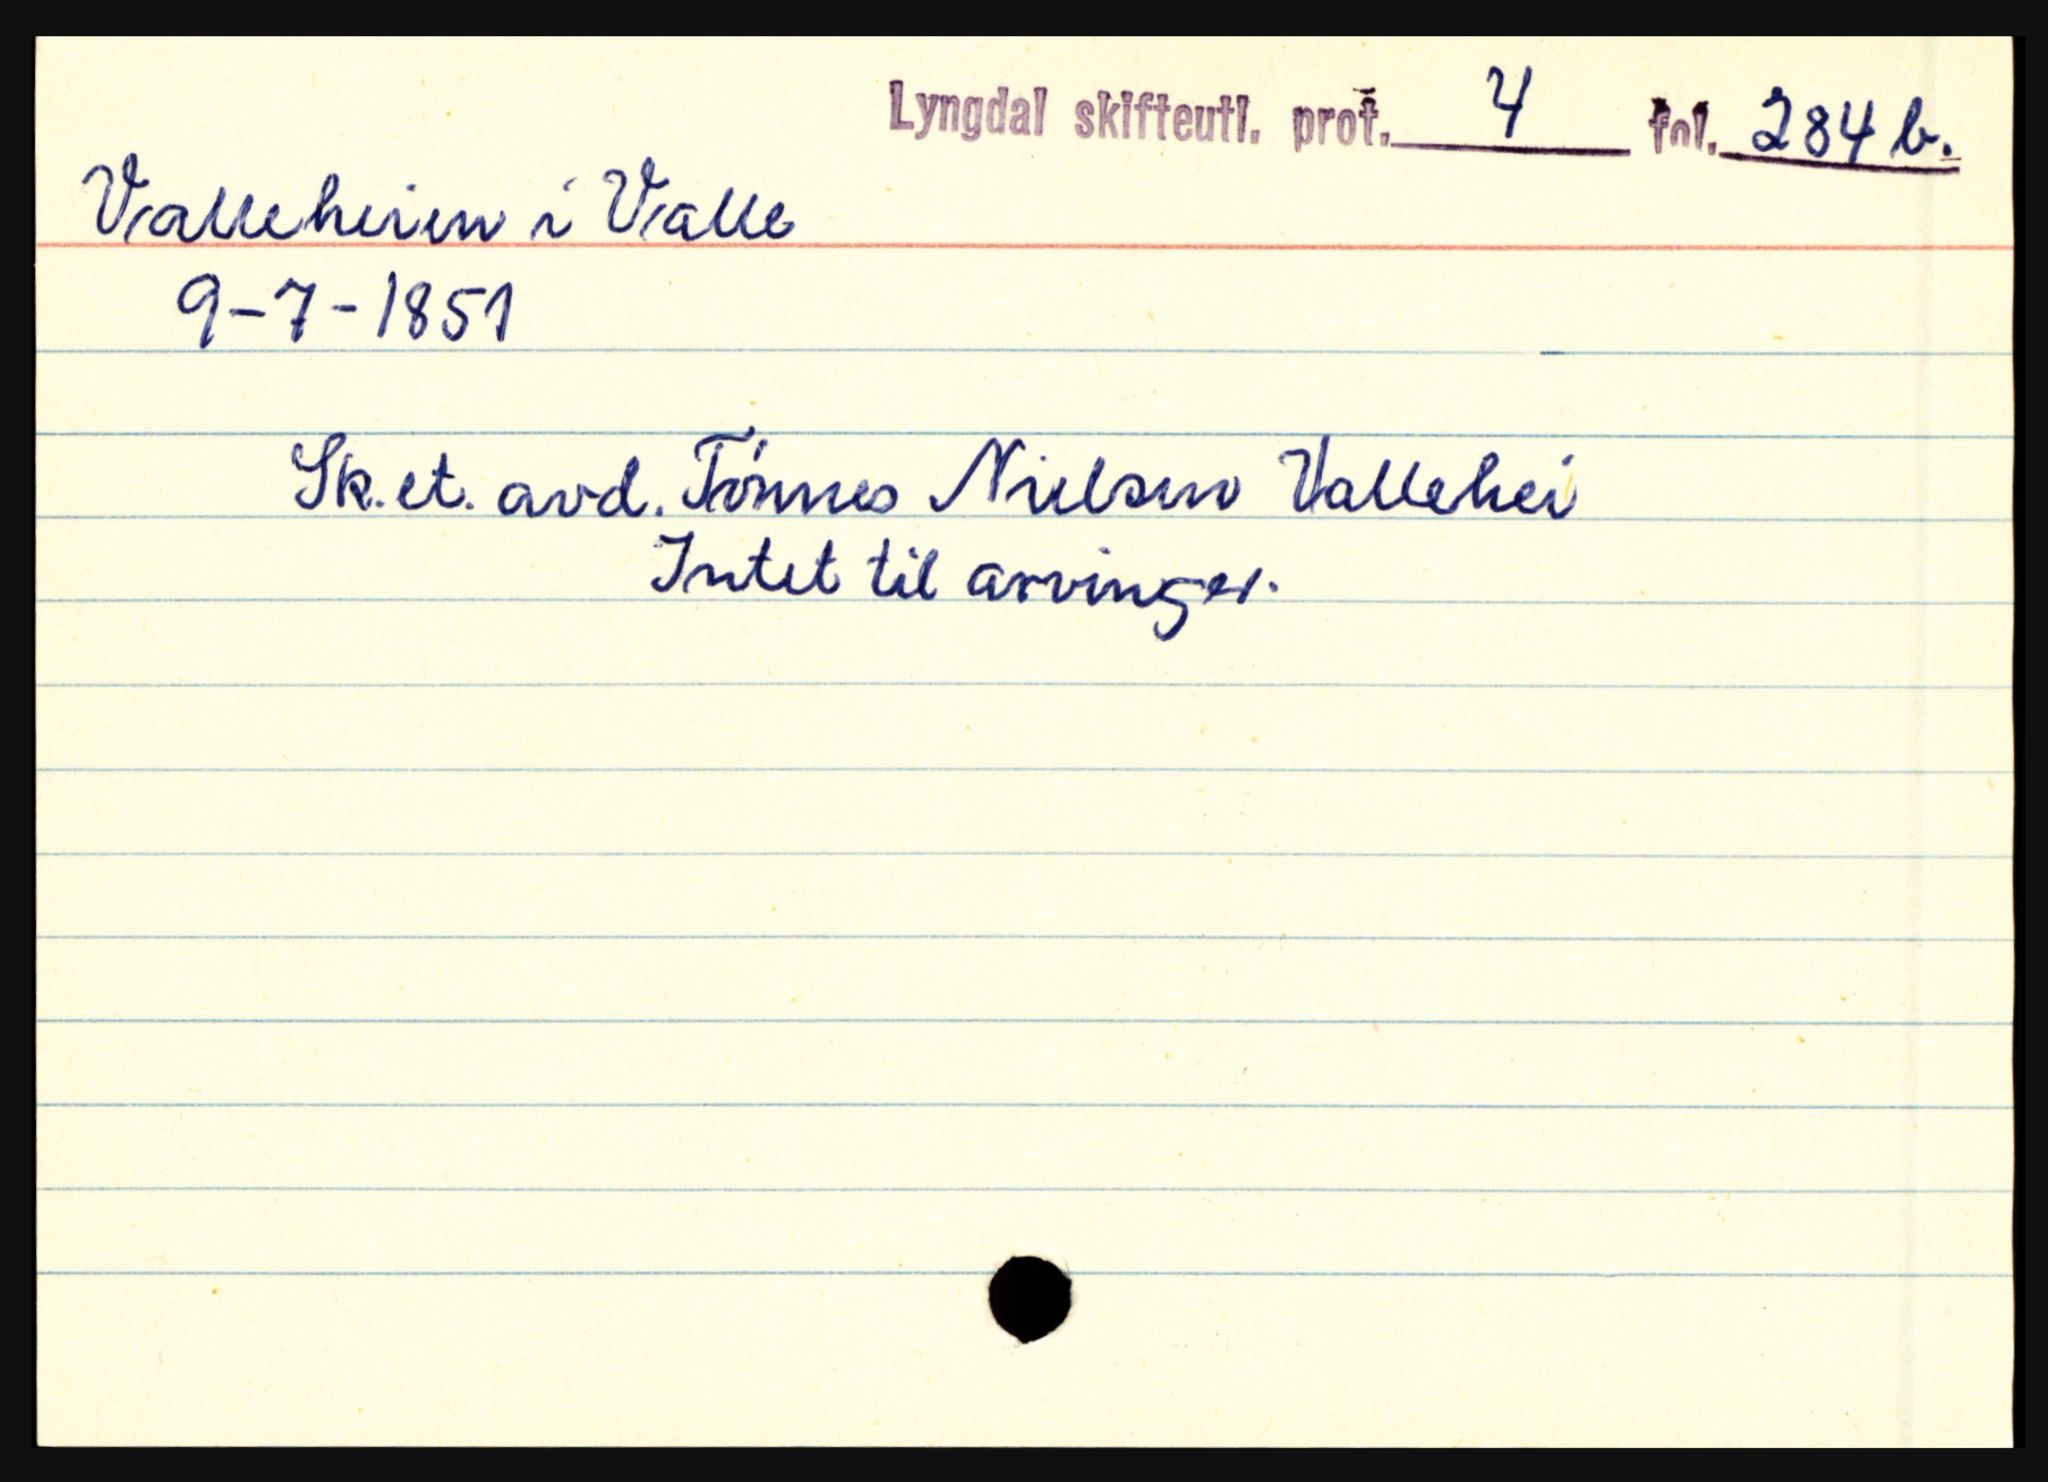 Lyngdal skifteutl. prot. 4 fol. 284 b.
Valleheien i Valle
9-7-1851
Sk. et. avd. Tónnes Nielsen Vallehei
Intet til arvinger.